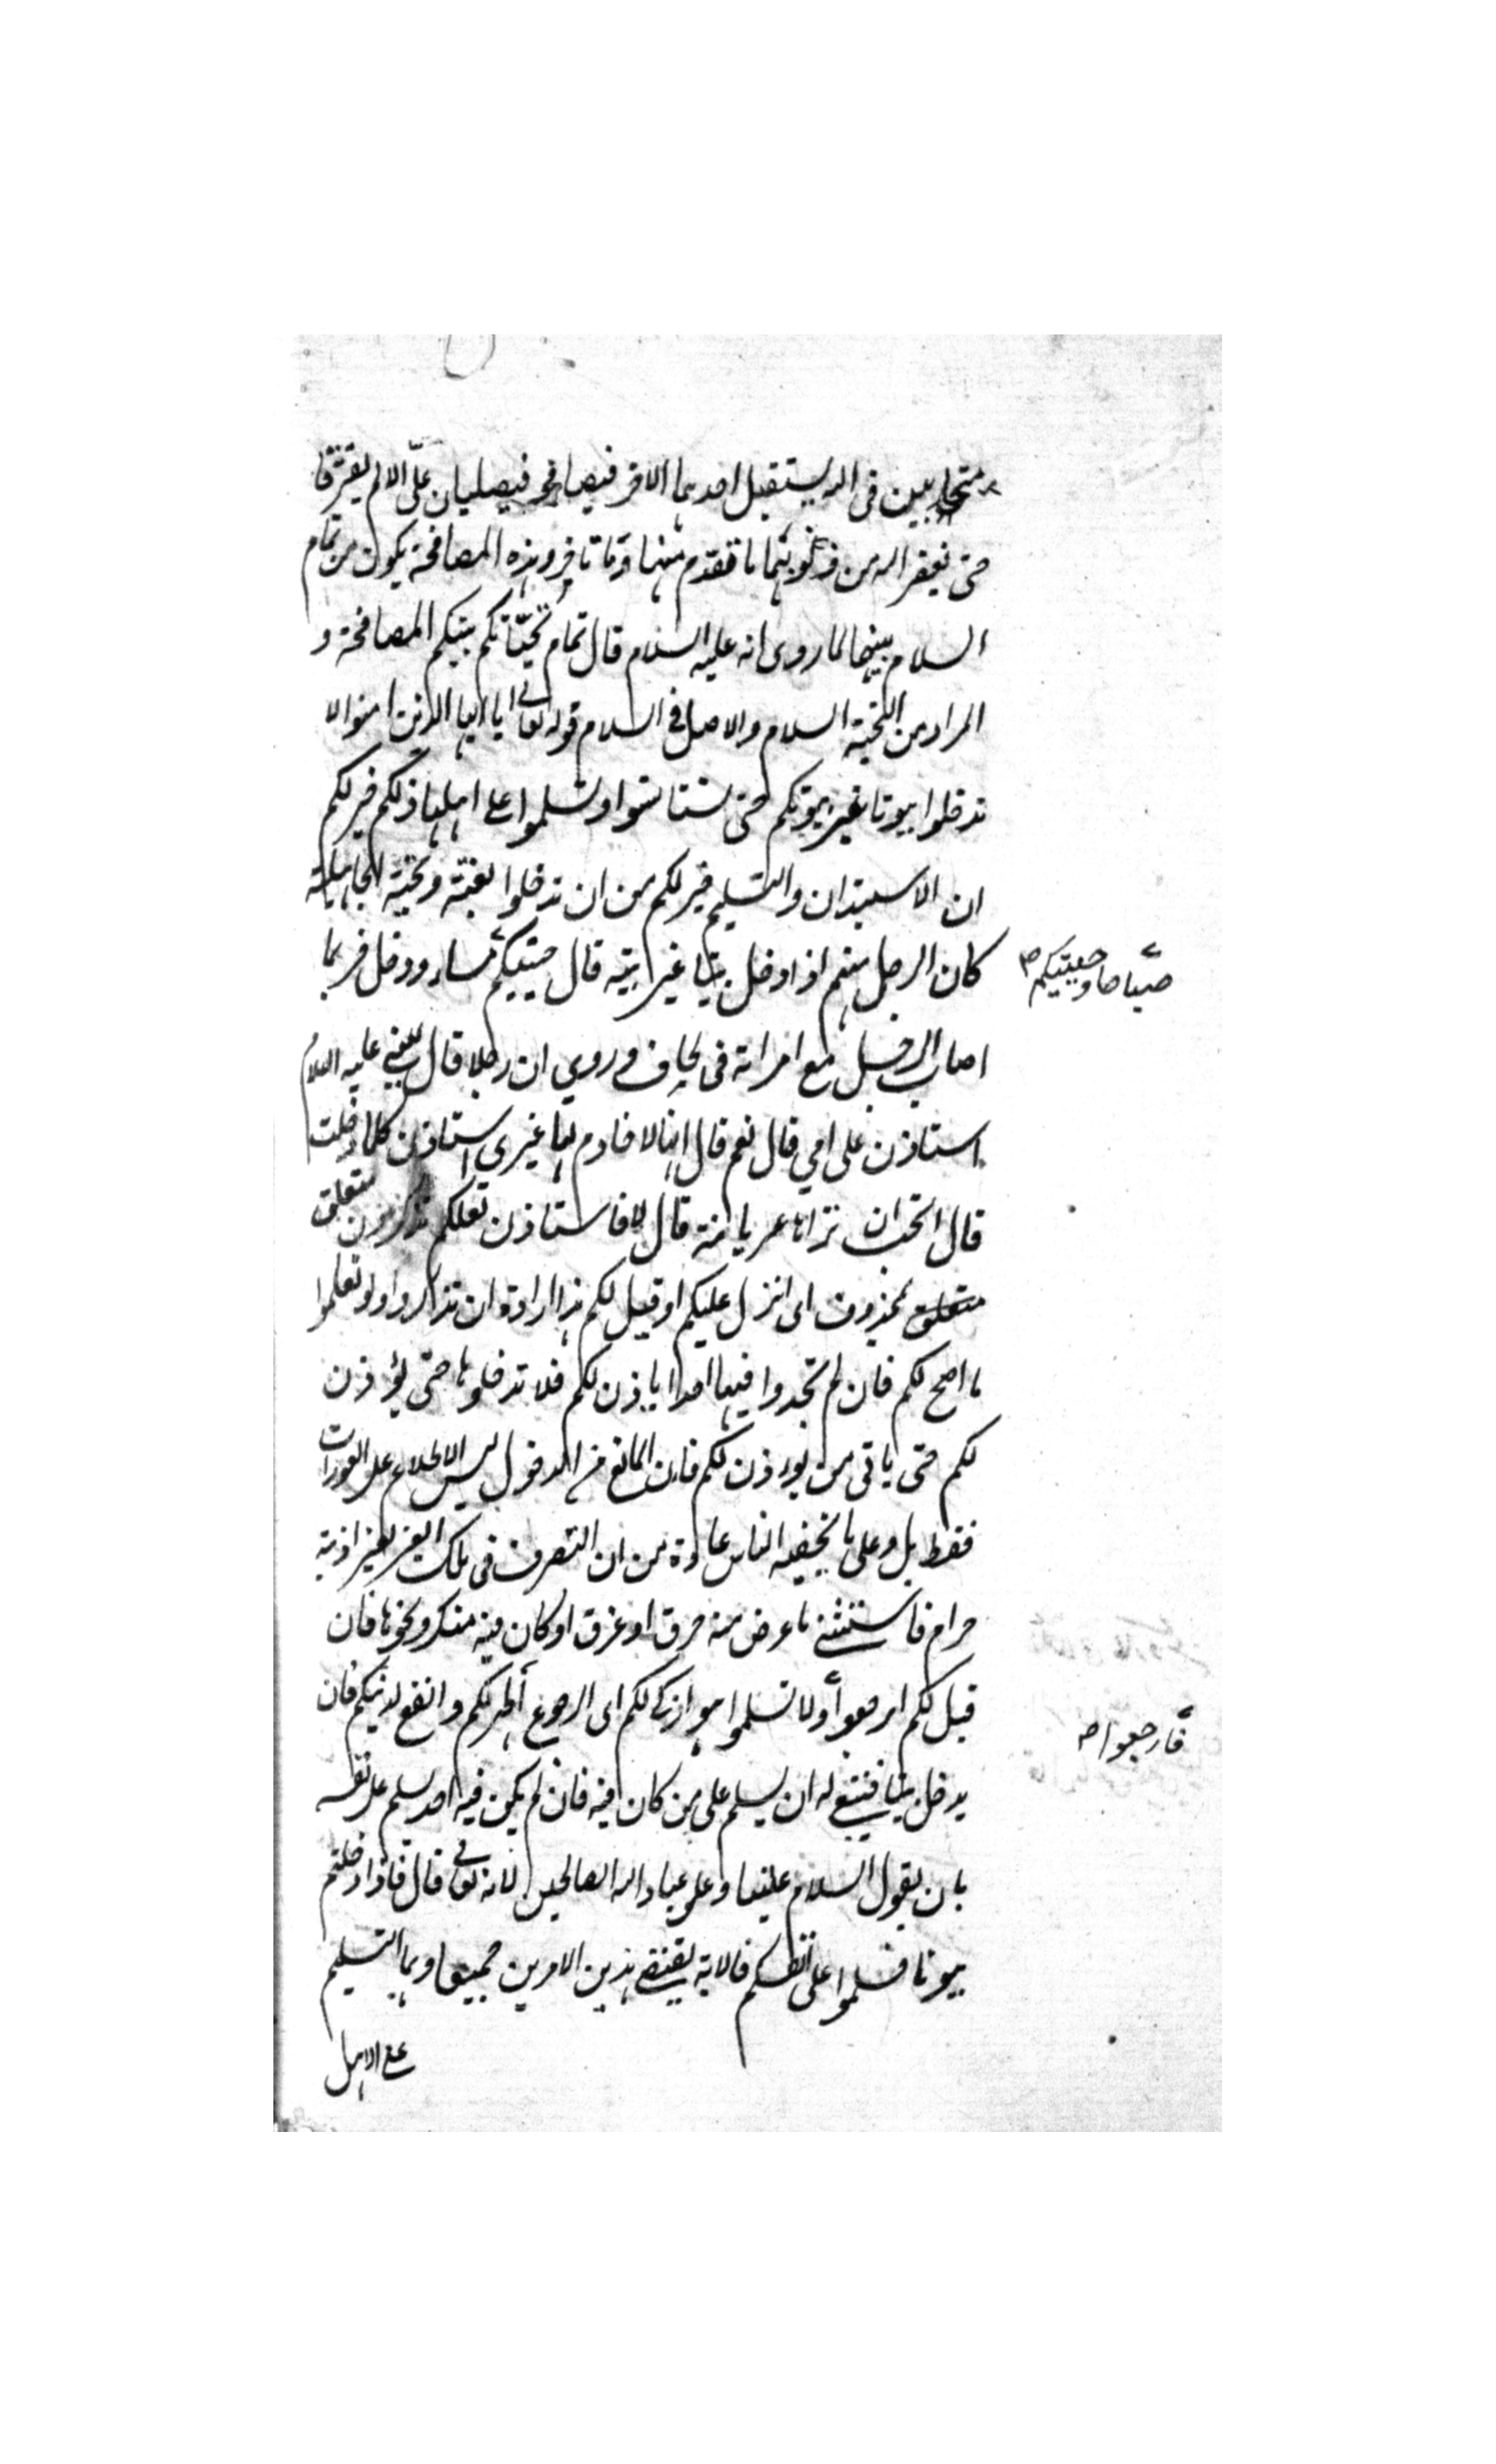 متحابين في الله يستقبل احدهما الاخر فيصافحه فيصليان علىّ الا لم يفترقا
حتى يغفر الله من ذنوبهما ما تقدم منهما وما تاخر وهذه المصافحة يكون من تمام
السلام بينهما لما روى انه عليه السلام قال تمام تحيّاتكم بينكم المصافحة و
المراد من التحية السلام والاصل في السلام قوله تعالى يا ايها الذين امنوا لا
تدخلوا بيوتا غير بيوتكم حتى تستانسوا وتسلموا على اهلها ذلكم خير لكم
ان الاستيذان والتسليم خير لكم من ان تدخلوا بغتة وتحية الجاهلية
كان الرجل منهم اذا دخل بيتا غير بيته قال حييتكم مساء ودخل فربما
صباحا وحييتكم صح
اصاب الرجل مع امراته في لحاف وروي ان رجلا قال للنبي عليه السلام
استاذن على امي قال نعم قال انها لا خادم لها غيري استاذن كلما دخلت
قال اتحب ان تراها عريانة قال لا فاستاذن لعلكم تذكرون متعلق
متعلق بمحذوف اى انزل عليكم او قيل لكم هذا ارادة ان تذكروا وتعلموا
ما اصح لكم فان لم تجدوا فيها احدا ياذن لكم فلا تدخلوها حتى يؤذن
لكم حتى ياتى من يوءذن لكم فان المانع من الدخول ليس الاطلاع على العورات
فقط بل وعلى ما يخفيه الناس عادة من ان التصرف في ملك الغير بغير اذنه
حرام فاستثنى ما عرض منه حرق او غرق او كان فيه منكر ونحوها فان
قيل لكم ارجعوا ولا تسلموا هو ازكى لكم اى الرجوع أطهر لكم وانفع لدينكم فان
فارجعوا صح
يدخل بيتا فينبغي له ان يسلم على من كان فيه فان لم يكن فيه احد يسلم على نفسه
بان يقول السلام علينا وعلى عباد الله الصالحين لانه تعالى قال فاذا دخلتم
بيوتا فسلموا على انفسكم فالاية يقتضي هذين الامرين جميعا وهما التسليم
على الاهل